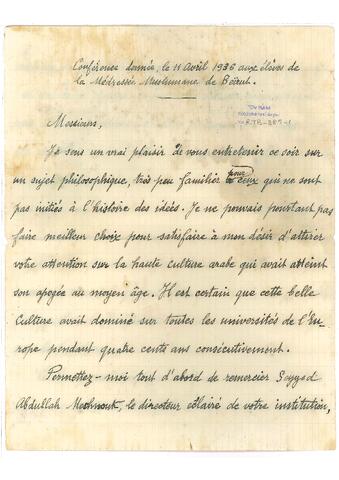 Conférence donnée, le 11 Avril 1936 aux élèves de
la Médressée Musulmane de Beirut.
Messieurs,
Je sens un vrai plaisir de vous entretenir ce soir sur
un sujet philosophique, très peu familier pour ceux qui ne sont
pas initiés à l'histoire des idées. Je ne pouvais pourtant pas
faire meilleur choix pour satisfaire à mon désir d'attirer
votre attention sur la haute culture arabe qui avait atteint
son apogée au moyen âge. Il est certain que cette belle
Culture avait dominé sur toutes les universités de l'Eu-
rope pendant quatre cents ans consécutivement.
Permettez-moi tout d'abord de remercier Seyyed
Abdullah Mechnouk, le directeur éclairé de votre institution,